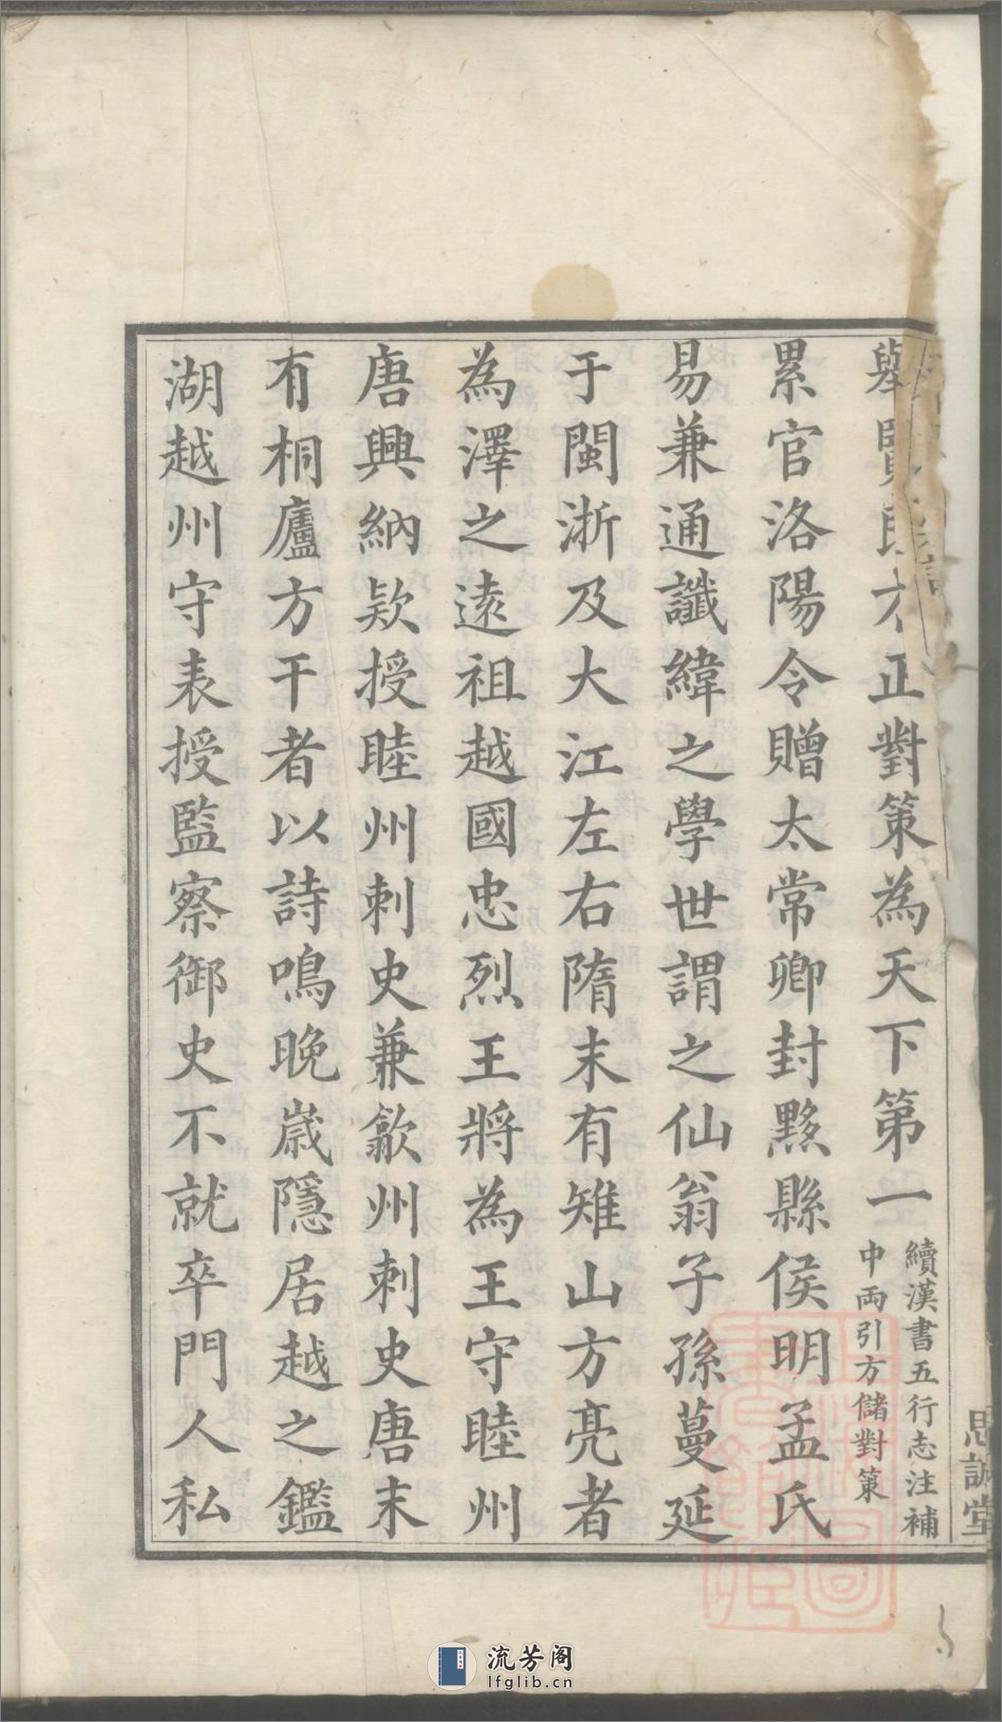 舉賢良方正對策為天下第一續漢書五行志注補中兩引方儲對策
累官洛陽令贈太常卿封黟縣侯明孟氏
易兼通讖緯之學世謂之仙翁子孫蔓延
于閩浙及大江左右隋末有雉山方亮者
為澤之遠祖越國忠烈王將為王守睦州
唐興納欵授睦州刺史兼歙州刺史唐末
有桐廬方干者以詩鳴晚嵗隱居越之鑑
湖越州守表授監察御史不就卒門人私
思誠堂
流芳阁
lfglib.cn